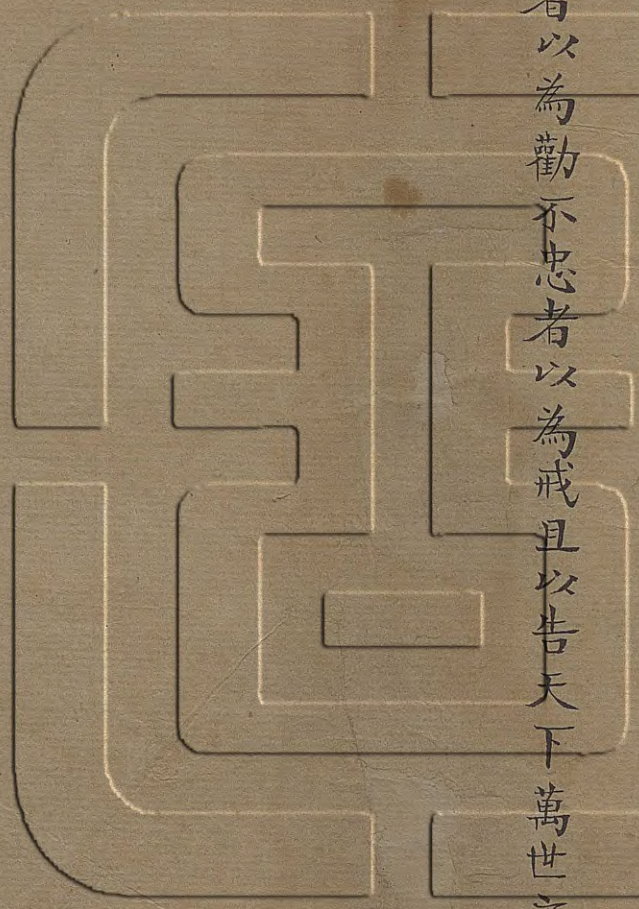 者以為勸不忠者以為戒且以告天下萬世